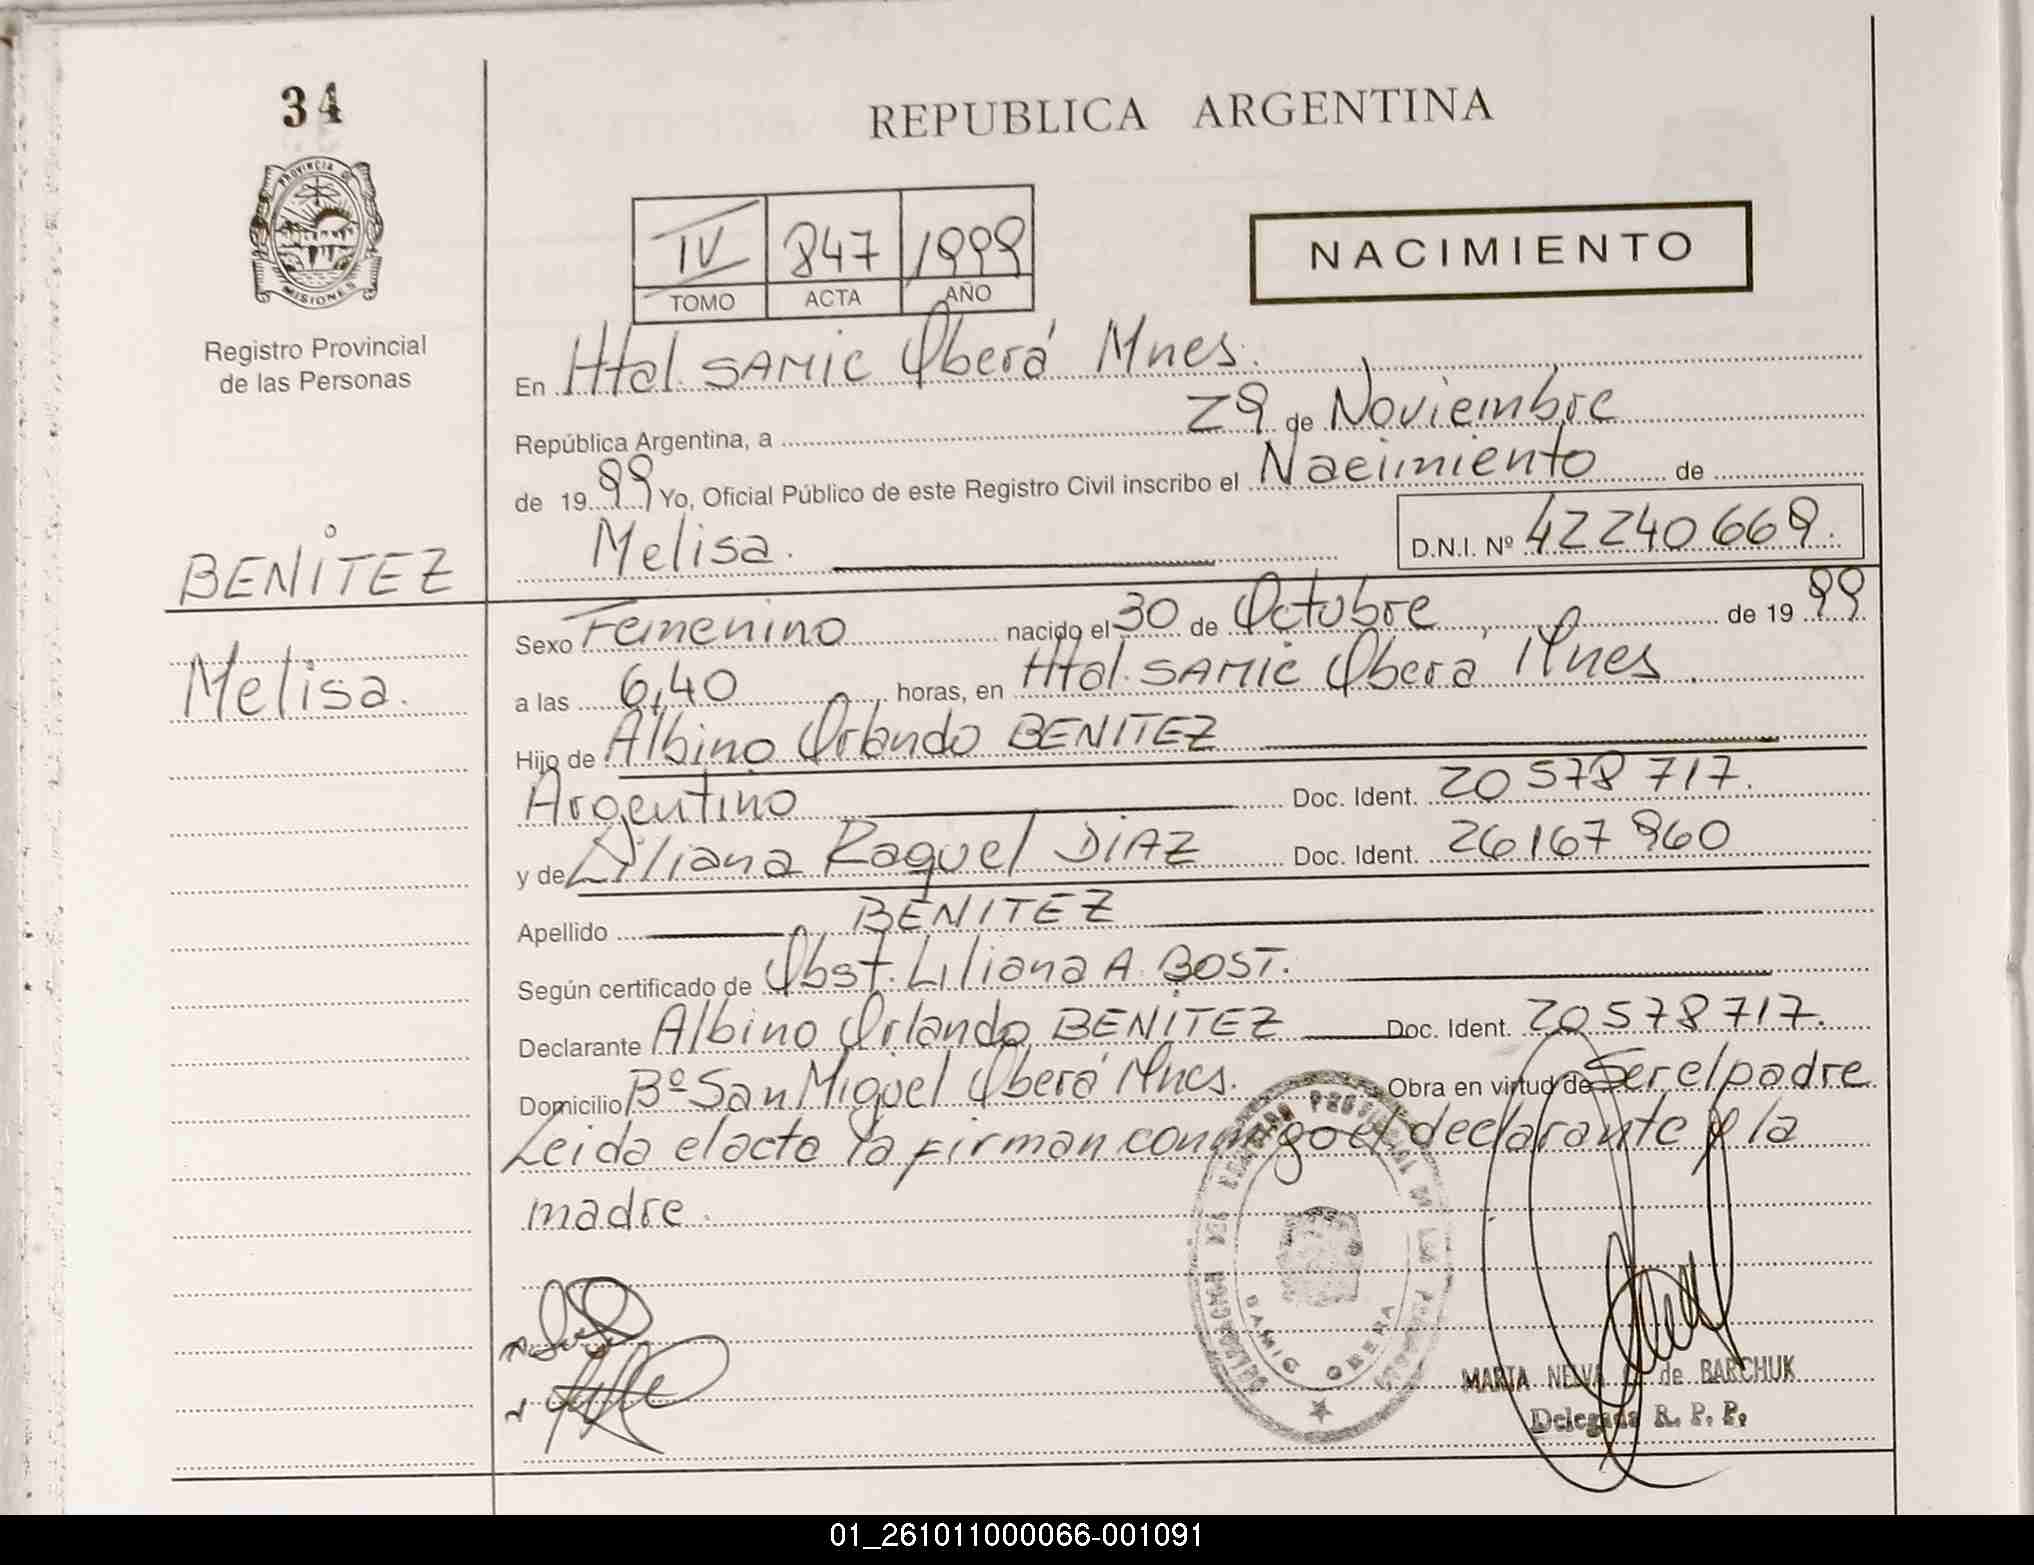 34
REPUBLICA ARGENTINA
PROVINCIA DE
MISIONES
Registro Provincial
de las Personas
IV 847 1999
TOMO ACTA AÑO
NACIMIENTO
En Htal. SAMIC Oberá Mnes.
República Argentina, a 29 de Noviembre
de 1999 Yo, Oficial Público de este Registro Civil inscribo el Nacimiento de
Melisa. D.N.I. Nº 42240669.
BENITEZ
Melisa.
Sexo Femenino nacido el 30 de Octubre de 1999
a las 6,40 horas, en Htal. SAMIC Oberá Mnes
Hijo de Albino Orlando BENITEZ
Argentino Doc. Ident. 20 578 717.
y de Liliana Raquel DIAZ Doc. Ident. 26167960
Apellido BENITEZ
Según certificado de Obst. Liliana A. BOST.
Declarante Albino Orlando BENITEZ Doc. Ident. 20578717.
Domicilio Bº San Miguel Oberá Mnes. Obra en virtud de Ser el padre
Leida el acta la firman conmigo el declarante y la
madre.
SAMIC OBERA
MARIA NELVA de BARCHUK
Delegada R. P. P.
01_261011000066-001091